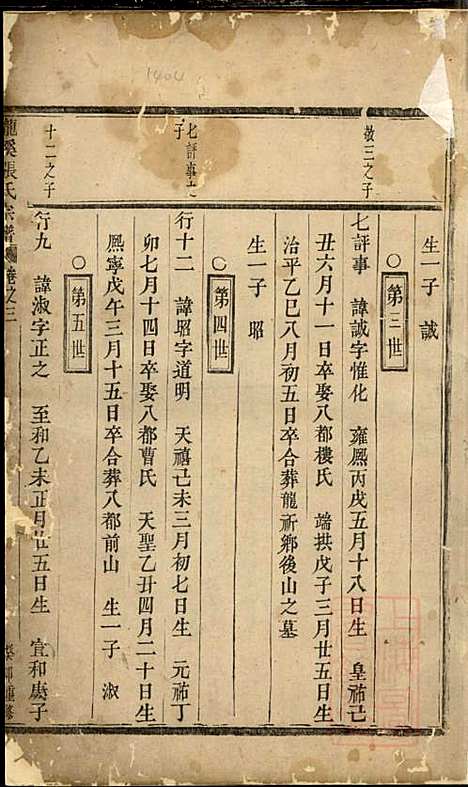 1404
敬三之子
生一子 誠
○第三世
七評事 諱誠字惟化 雍熈丙戌五月十八日生 皇祐己
丑六月十一日卒娶八都樓氏 端拱戊子三月廿五日生
治平乙巳八月初五日卒合葬龍祈鄉後山之墓
生一子 昭
○第四世
七評事之
子
行十二 諱昭字道明 天禧己未三月初七日生 元祐丁
卯七月十四日卒娶八都曹氏 天聖乙丑四月二十日生
熈寧戊午三月十五日卒合葬八都前山 生一子 淑
○第五世
十二之子
行九 諱淑字正之 至和乙未正月廿五日生 宣和庚子
龍溪張氏宗譜 卷之三